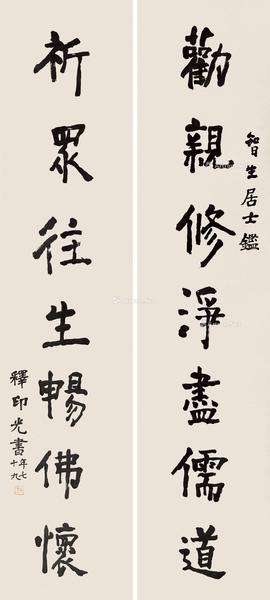 勸親修淨盡儒道
智生居士鑑
祈眾往生暢佛懷
釋印光書
年七十九